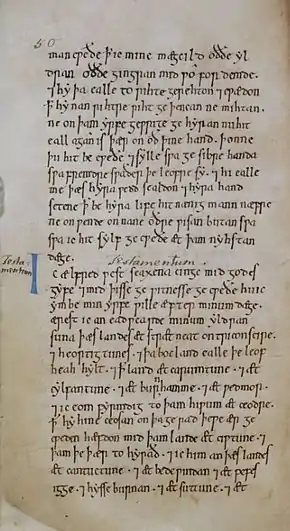 50
man cƿæðe þ̄ ic mine mægcild oððe yl
dran oððe gingran mid ƿo fordemde.
⁊ hy þa ealle to rihte gerehton ⁊ cƿædon
þ̄ hy nan rihtre riht geþencan ne mihtan.
ne on þam yrfe geƿrite gehyran nu hit
eall agan is þær on oð þine hand. þonne
þu hit becƿeðe ⁊ sylle sƿa gesibre handa
sƿa fremdre sƿaðer þe leofre sy. ⁊ hi ealle
me þæs hyra ƿedd sealdon ⁊ hyra hand
setene þ̄ be hyra life hit nænig mann næfre
ne onƿende on nane oðre ƿisan butan sƿa
sƿa ic hit sylf gecƿeðe æt þam nyhstan
dæge. Testamentum.
Testa-
mentum
IC ælfred ƿestseaxena cinge mid godes
gyfe ⁊ mid þisse geƿitnesse gecƿeðe hu ic
ymbe min yrfe ƿille æfter minum dæge.
ærest ic an eadƿearde minum yldran
suna þæs landes æt strætneat on triconscire.
⁊ heortigtunes. ⁊ þa bocland ealle þe leof
heah hylt. ⁊ þ̄ land æt carumtune. ⁊ æt
cylfantune. ⁊ æt burnhamme. ⁊ æt ƿedmor.
⁊ ic eom fyrmdig to þam hiƿum æt ceodre.
þ̄ hy hine ceosan on þa gerad þe ƿe ær ge
cƿeden hæfdon mid þam lande æt ciƿtune. ⁊
þam þe þær to hyrað. ⁊ ic him an þæs landes
æt cantuctune. ⁊ æt bedeƿindan ⁊ æt pefes
igge. ⁊ hysseburnan. ⁊ æt suttune. ⁊ æt